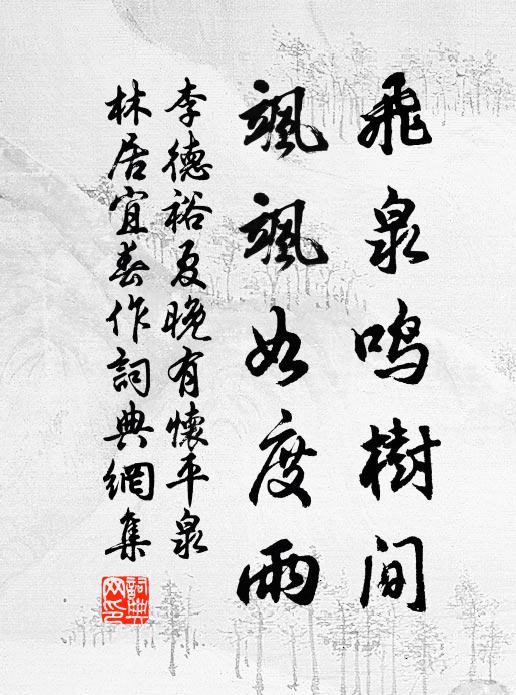 飛泉鳴樹間
颯颯如度雨
李德裕夏晚有懷平泉
林居宜春作詞典網集